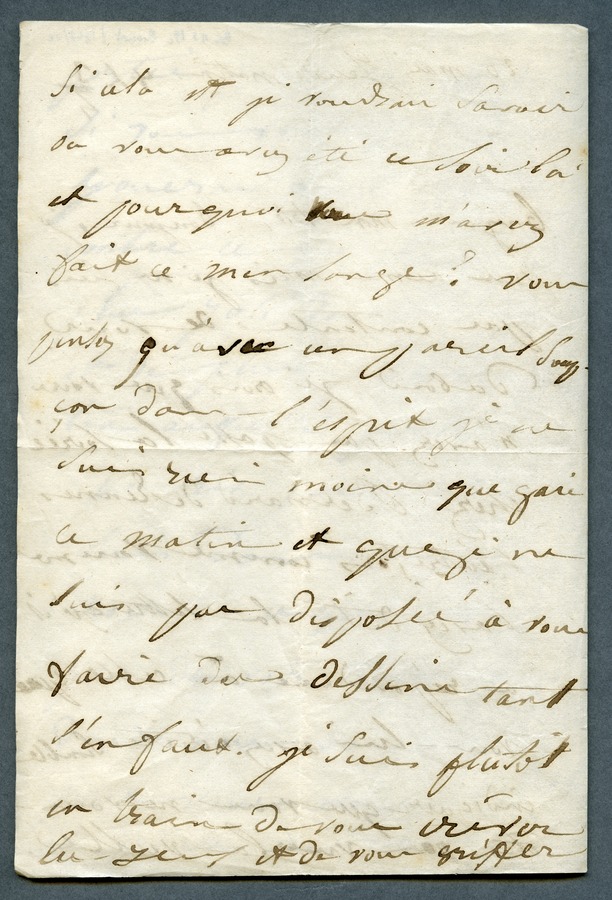 si cela est je voudrais savoir
où vous avez été ce soir là
et pourquoi vous m'avez
fait ce mensonge ? vous
pensez qu'avec un pareil soup-
çon dans l'esprit je ne
suis rien moins que gaie
ce matin et que je ne
suis pas disposée à vous
faire des dessins tant
s'en faut. je suis plutôt
en train de vous crever
les yeux et de vous griffer